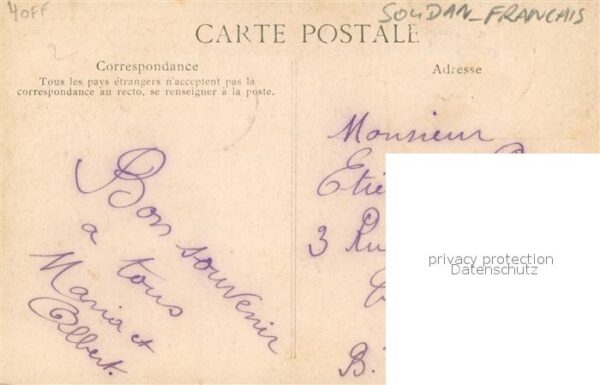 4OFF
SOUDAN_FRANCAIS
CARTE POSTALE
Correspondance
Tous les pays étrangers n'acceptent pas la
correspondance au recto, se renseigner à la poste.
Bon souvenir
a tous
Maria et
Albert.
Adresse
Monsieur
3
B.
privacy protection
Datenschutz